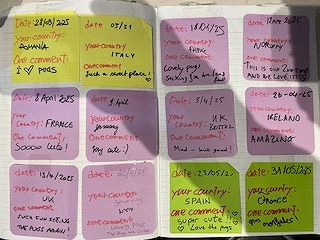 Date: 28/03/2025
your country:
ROMANIA
One comment:
I ♡ PUGS
date 03/31
your country:
ITALY
One Comment:
Such a sweet place!
date: 18/04/25
your country:
One comment:
Lovely pugs
date: 12 APR 2025
your country:
NORWAY
One comment:
This is our
AND WE LOVE IT
Date: 8 April 2025
your
Country: FRANCE
One Comment:
Soooo cute!
date: 9 April
your country:
Germany
One comment:
Very cute :)
Date: 5/4/25
your
Country: UK
BRISTOL
One Comment:
Mad - love pugs!
Date: 26-04-25
your
country:
ICELAND
One comment:
AMAZING
date: 13/4/2025
your country:
UK
one comment
SUCH FUN SEEING
THE PUGS AGAIN!
date:
your country:
Germany
one comment
Lovely Pugs
date: 23/05/2
your country:
SPAIN
one comment:
super cute!!
♡ Love the pugs
date: 31/05/25
your country:
one comment: